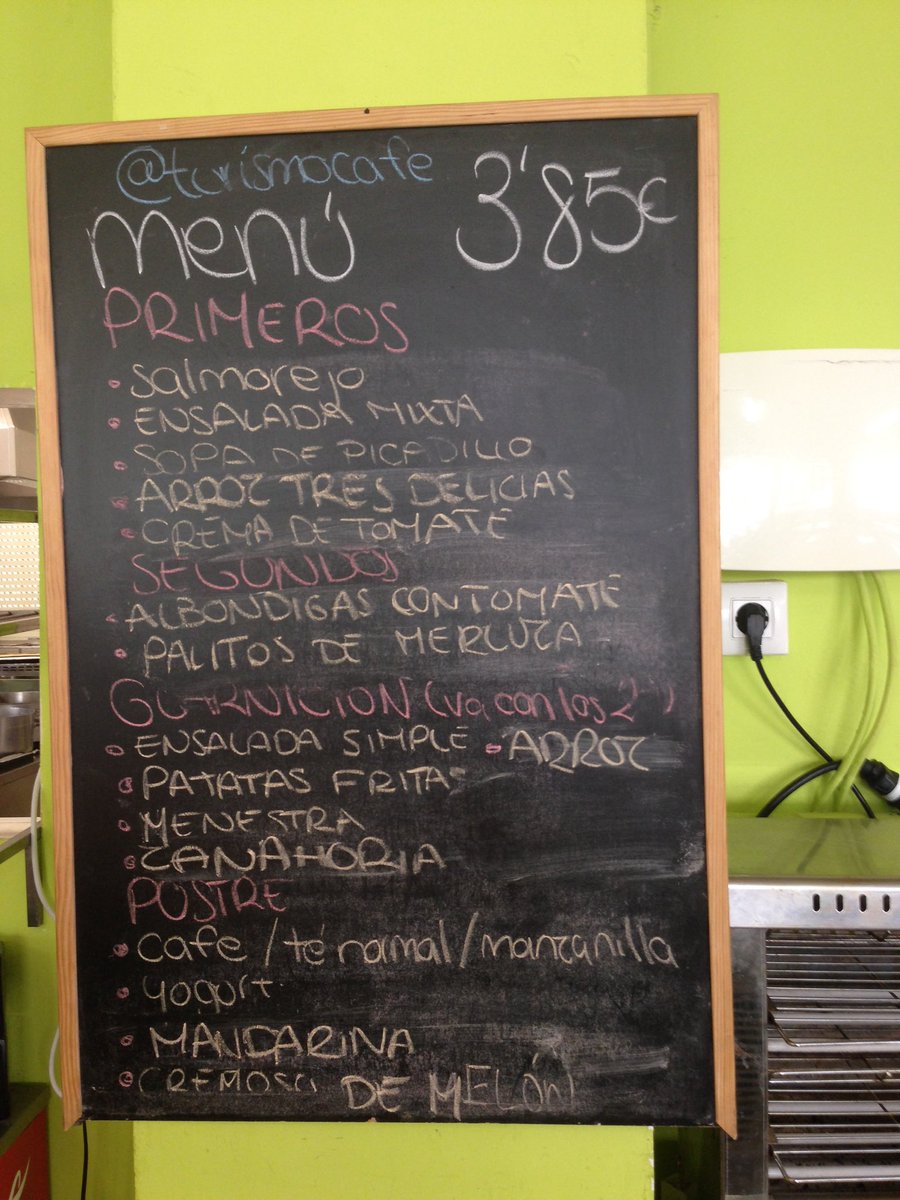 @turismocafe
menú 3'85€
PRIMEROS
• salmorejo
• ENSALADA MIXTA
• SOPA DE PICADILLO
• ARROZ TRES DELICIAS
• CREMA DE TOMATE
SEGUNDOS
• ALBONDIGAS CON TOMATE
• PALITOS DE MERLUZA
GUARNICION (va con los 2")
• ENSALADA SIMPLE • ARROZ
• PATATAS FRITAS
• MENESTRA
• ZANAHORIA
POSTRE
• cafe / té normal / manzanilla
• yogurt
• MANDARINA
• CREMOSO DE MELÓN